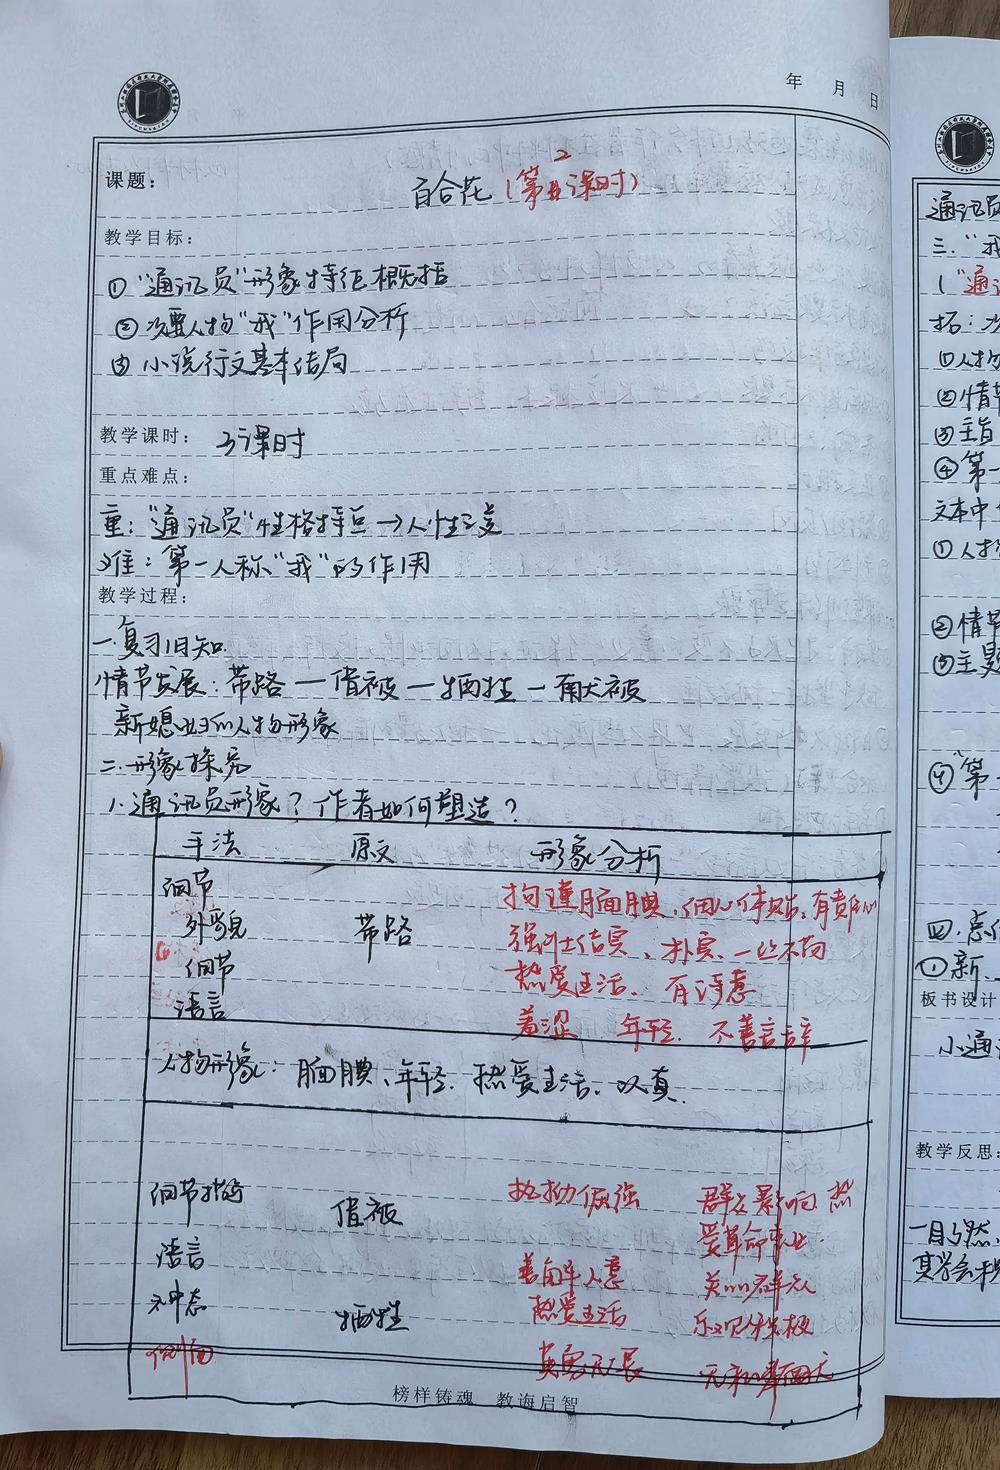 年 月 日
课题：
百合花（第2课时）
教学目标：
①“通讯员”形象特征概括
②次要人物“我”作用分析
③小说行文基本结局
教学课时： 3课时
重点难点：
重：“通讯员”性格特点→人性之美
难：第一人称“我”的作用
教学过程：
一.复习旧知
情节发展：带路—借被—牺牲—献被
新媳妇的人物形象
二.形象探究
1.通讯员形象？作者如何塑造？
手法 原文 形象分析
细节 拘谨腼腆、细心体贴、有责任心
外貌 带路 强壮结实、朴实、一丝不苟
细节 热爱生活、有诗意
语言 羞涩 年轻 不善言辞
人物形象：腼腆、年轻、热爱生活、认真.
细节描写 借被 执拗倔强 群众影响 热
爱革命事业
语言 善解人意 关心群众
神态 牺牲 热爱生活 乐观积极
侧面 无私奉献
榜样铸魂 教诲启智
通讯员
三.“我
1“通讯
拓：次
①人物
②情节
③主旨
④第一
文本中
①人物
②情节
③主题
④“第一
四.总结
①新
板书设计
小通讯
教学反思：
一目了然